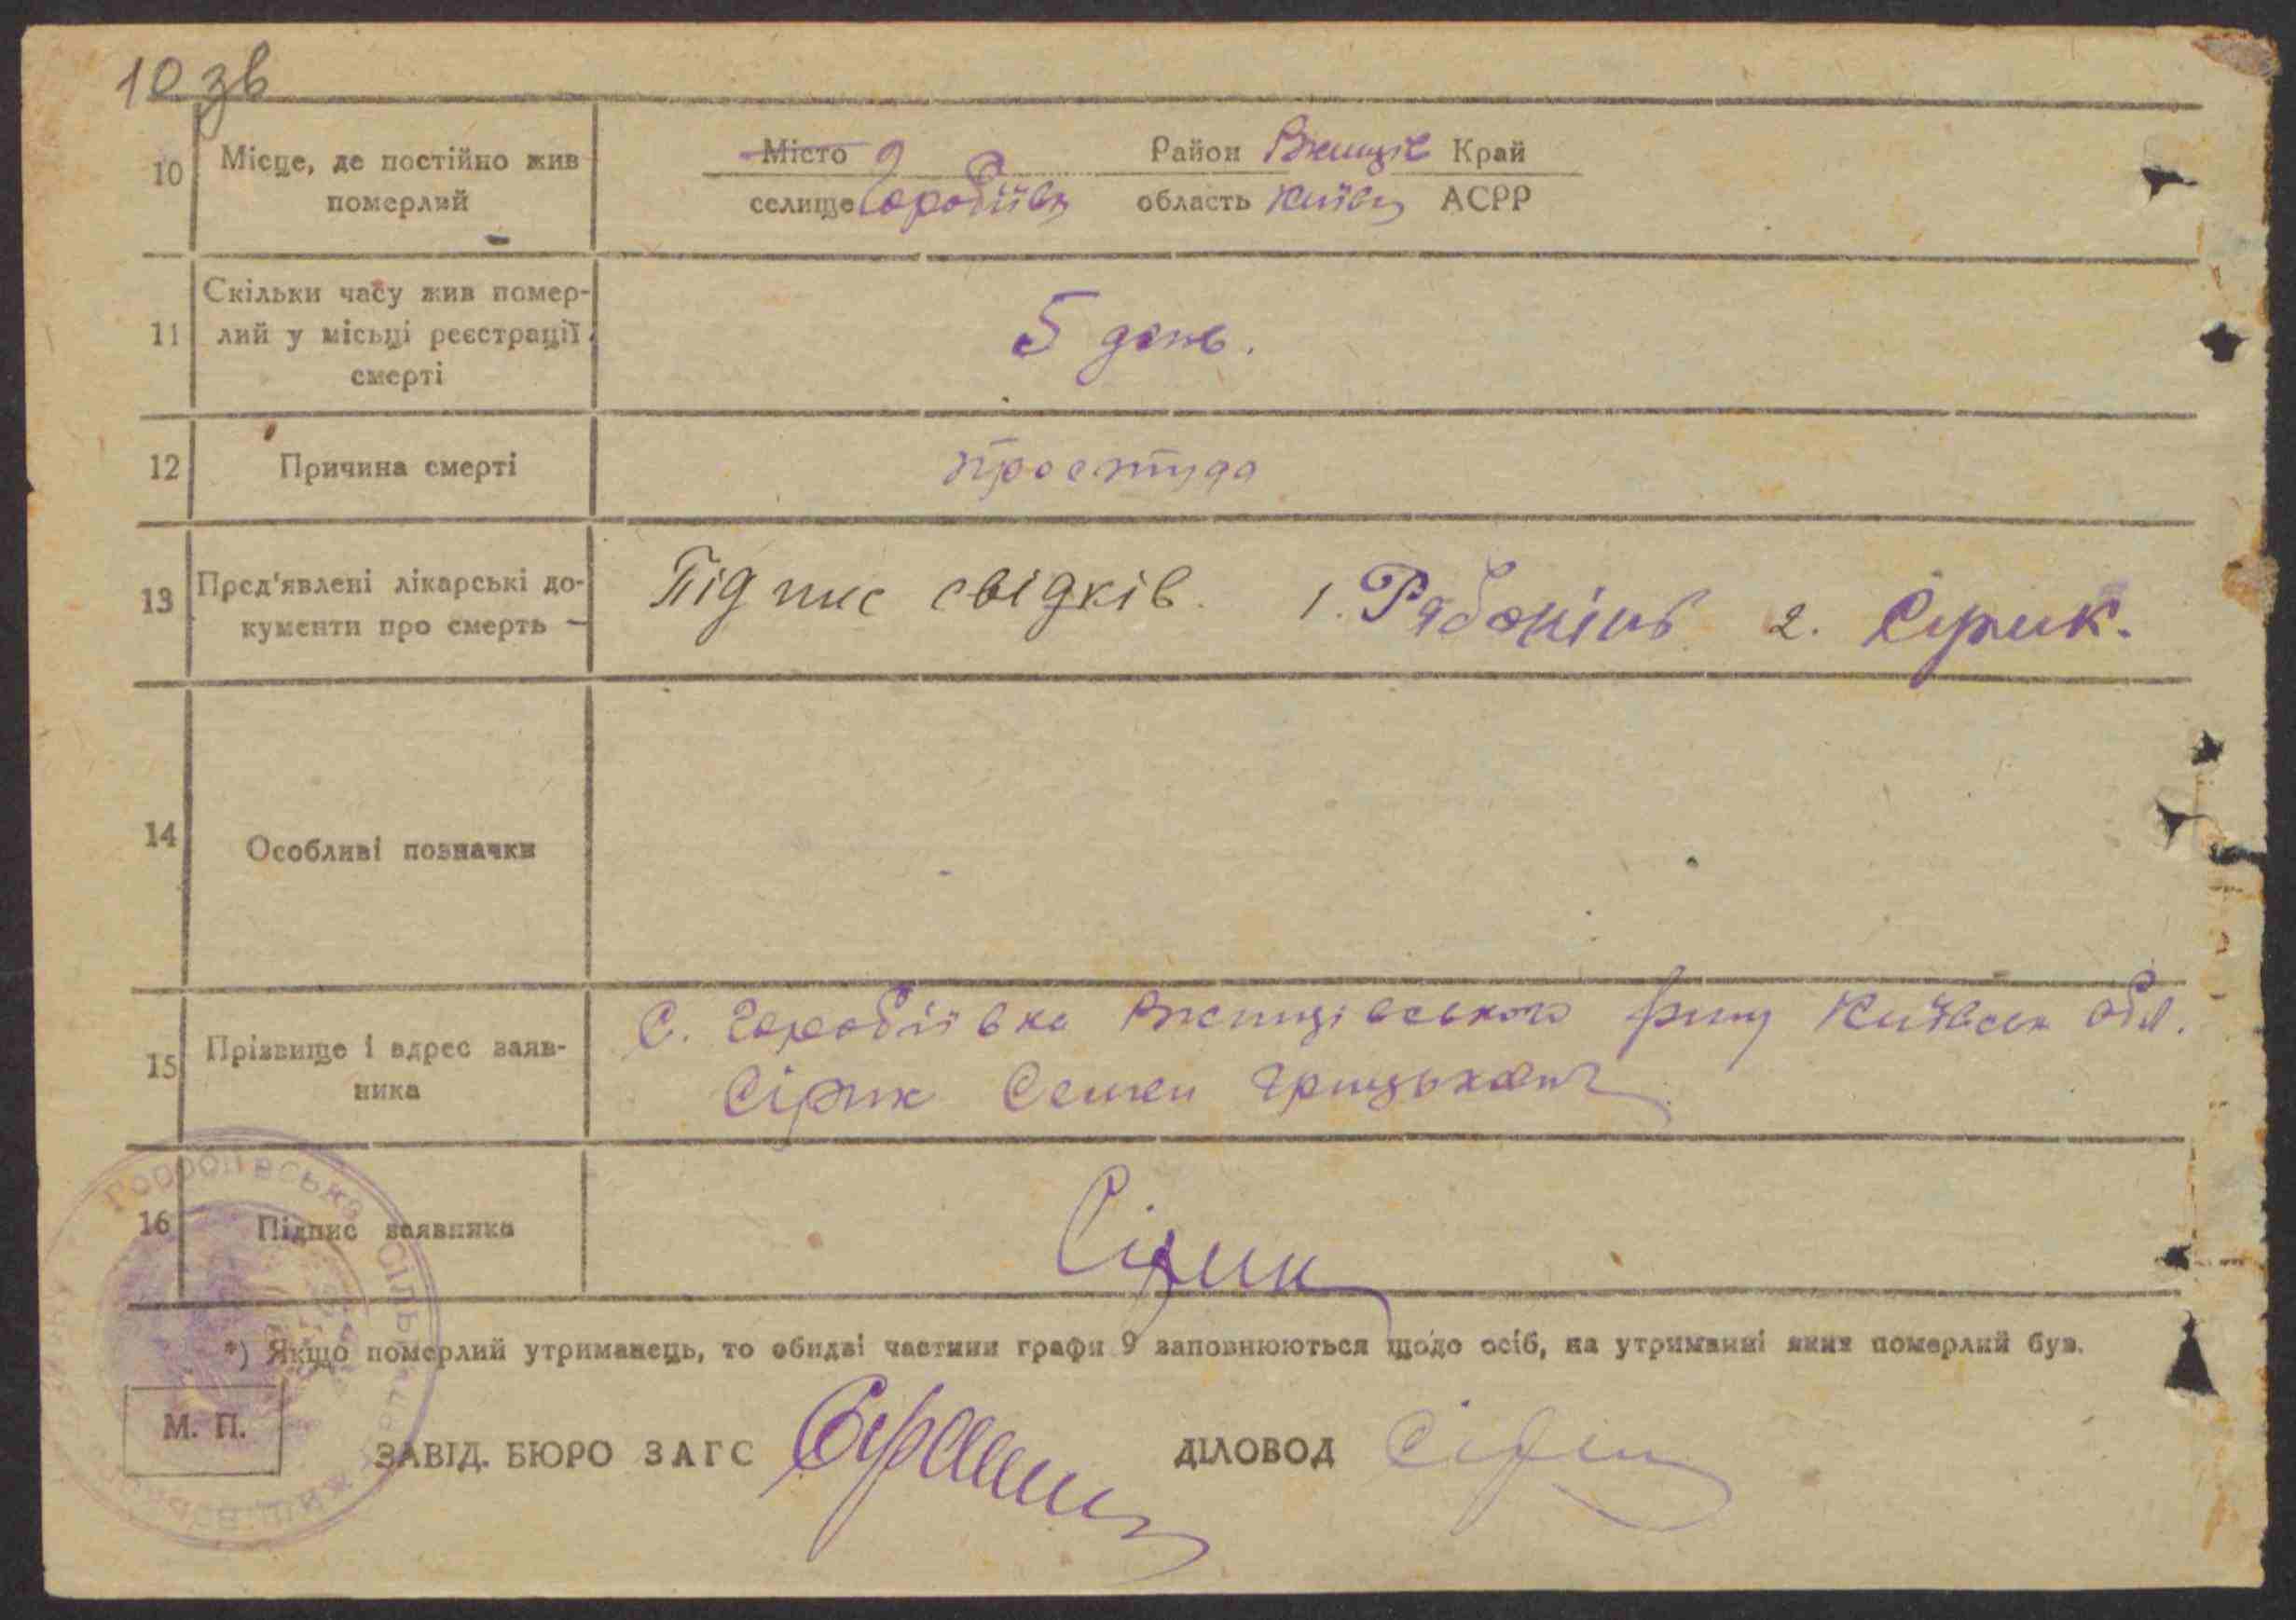 10 зв
10 Місце, де постійно жив
померлий
Місто Район Ржищів Край
селище Горобіївк область Київ АСРР
11 Скільки часу жив помер-
лий у місьці реєстрації
смерті
5 день.
12 Причина смерті
простуда
13 Пред'явлені лікарські до-
кументи про смерть
Підпис свідків. 1. 2. Сірик.
14 Особливі позначки
15 Прізвище і адрес заяв-
ника
С. Горобіївка Ржищівського р-ну Київськ обл.
Сірик Семен Грицькович
16 Підпис заявника
Сірик
*) Якщо померлий утриманець, то обидві частини графи 9 заповнюються щодо осіб, на утриманні яких померлий був.
М. П.
ЗАВІД. БЮРО ЗАГС ДІЛОВОД